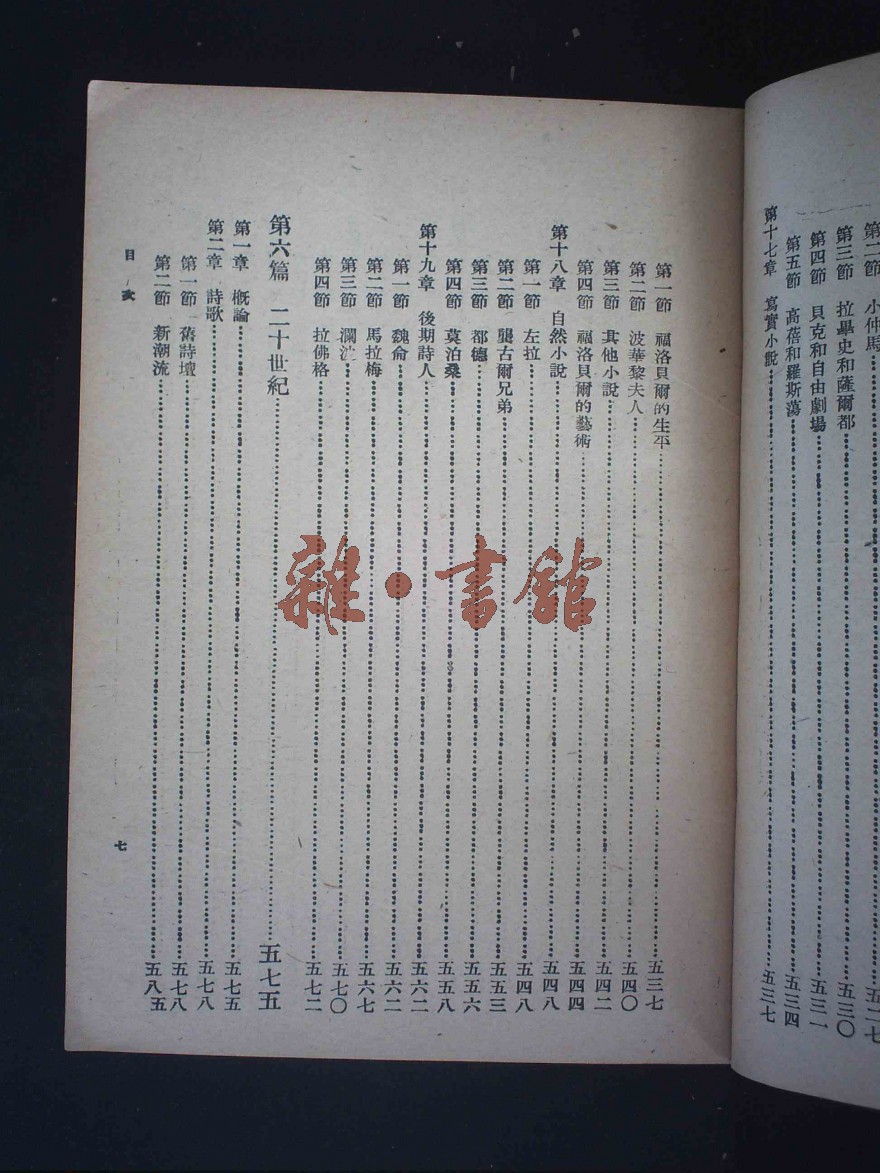 第二節 小仲馬……五二七
第三節 拉畢史和薩爾都……五三〇
第四節 貝克和自由劇場……五三一
第五節 高蓓和羅斯蕩……五三四
第十七章 寫實小說……五三七
第一節 福洛貝爾的生平……五三七
第二節 波華黎夫人……五四〇
第三節 其他小說……五四二
第四節 福洛貝爾的藝術……五四四
第十八章 自然小說……五四八
第一節 左拉……五四八
第二節 龔古爾兄弟……五五三
第三節 都德……五五六
第四節 莫泊桑……五五八
第十九章 後期詩人……五六二
第一節 魏侖……五六二
第二節 馬拉梅……五六七
第三節 瀾……五七〇
第四節 拉佛格……五七二
第六篇 二十世紀……五七五
第一章 概論……五七五
第二章 詩歌……五七八
第一節 舊詩壇……五七八
第二節 新潮流……五八五
目次
七
雜·書館